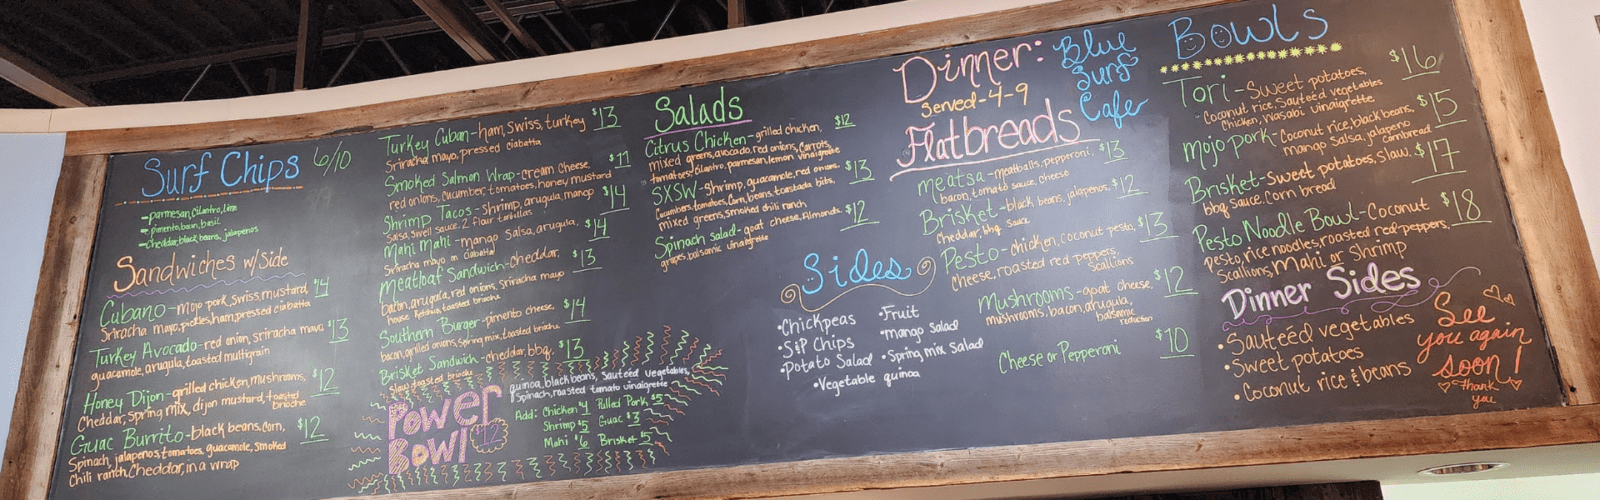 Surf Chips 6/10
- parmesan, cilantro, lime
- pimento, bacon, basil
- cheddar, black beans, jalapenos
Sandwiches w/Side
Cubano - mojo pork, swiss, mustard, $14
Sriracha mayo, pickles, ham, pressed ciabatta
Turkey Avocado - red onion, sriracha mayo $13
guacamole, arugula, toasted multigrain
Honey Dijon - grilled chicken, mushrooms, $12
Cheddar, spring mix, dijon mustard, toasted
brioche
Guac Burrito - black beans, corn, $12
Spinach, jalapenos, tomatoes, guacamole, smoked
Chili ranch, Cheddar, in a wrap
Turkey Cuban - ham, swiss, turkey $13
Sriracha mayo, pressed ciabatta
Smoked Salmon Wrap - cream cheese, $11
red onions, cucumber, tomatoes, honey mustard
Shrimp Tacos - shrimp, arugula, mango $14
Salsa, swell sauce, 2 flour tortillas
Mahi Mahi - mango salsa, arugula, $14
Sriracha mayo on ciabatta
Meatloaf Sandwich - cheddar, $13
bacon, arugula, red onions, sriracha mayo
house ketchup, toasted brioche
Southern Burger - pimento cheese, $14
bacon, grilled onions, spring mix, toasted brioche
Brisket Sandwich - cheddar, bbq, $13
Slaw, toasted brioche
Power
Bowl $12
quinoa, black beans, sautéed vegetables,
Spinach, roasted tomato vinaigrette
Add: Chicken $4 Pulled Pork $5
Shrimp $5 Guac $3
Mahi $6 Brisket $5
Salads
Citrus Chicken - grilled chicken, $12
mixed greens, avocado, red onions, carrots,
tomatoes, cilantro, parmesan, lemon vinaigrette
SXSW - shrimp, guacamole, red onions, $13
Cucumbers, tomatoes, corn, beans, tostada bits,
mixed greens, smoked chili ranch
Spinach Salad - goat cheese, Almonds, $12
grapes, balsamic vinaigrette
Sides
• Chickpeas
• SIP Chips
• Potato Salad
• Fruit
• mango Salad
• Spring mix Salad
• Vegetable quinoa
Dinner:
served - 4-9
Blue
Surf
Cafe
Flatbreads
Meatsa - meatballs, pepperoni, $13
bacon, tomato sauce, cheese
Brisket - black beans, jalapenos, $12
Cheddar, bbq sauce
Pesto - chicken, coconut pesto, $13
cheese, roasted red peppers,
Scallions
Mushrooms - goat cheese, $12
mushrooms, bacon, arugula,
balsamic
reduction
Cheese or Pepperoni $10
Bowls
Tori - Sweet potatoes, $16
Coconut rice, Sautéed vegetables
Chicken, Wasabi vinaigrette
Mojo pork - Coconut rice, black beans, $15
mango Salsa, jalapeno
cornbread
Brisket - Sweet potatoes, slaw, $17
bbq sauce, Corn bread
Pesto Noodle Bowl - Coconut $18
Pesto, rice noodles, roasted red peppers,
Scallions, Mahi or Shrimp
Dinner Sides
• Sautéed vegetables
• Sweet potatoes
• Coconut rice & beans
See
you again
soon!
thank
you